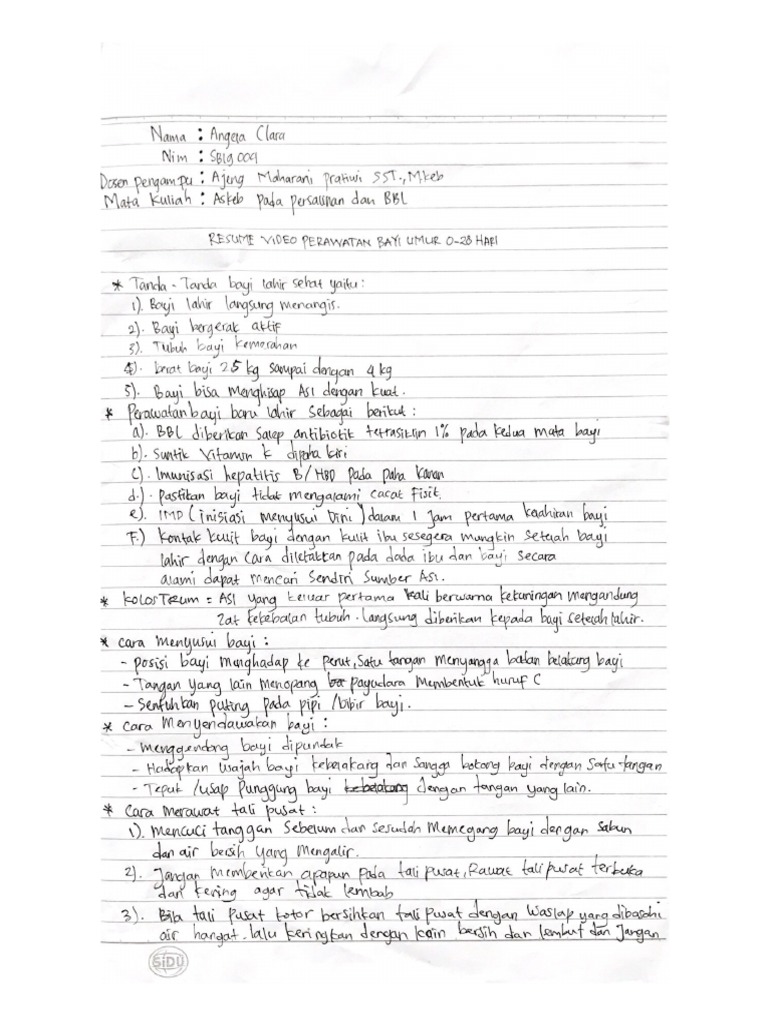 Nama : Angela Clara
Nim : SB19009
Dosen pengampu : Ajeng Maharani Pratiwi SST., M.keb
Mata Kuliah : Askeb pada persalinan dan BBL
RESUME VIDEO PERAWATAN BAYI UMUR 0-28 HARI
* Tanda - Tanda bayi lahir sehat yaitu :
1). Bayi lahir langsung menangis.
2). Bayi bergerak aktif
3). Tubuh bayi kemerahan
4). berat bayi 25 kg sampai dengan 4 kg
5). Bayi bisa Menghisap ASI dengan kuat.
* Perawatan bayi baru lahir sebagai berikut :
a). BBL diberikan Salep antibiotik tetrasiklin 1% pada kedua mata bayi
b). Suntik Vitamin K dipaha kiri
c). Imunisasi hepatitis B/HB0 pada paha Kanan
d.). pastikan bayi tidak mengalami cacat Fisik.
e). IMD (inisiasi menyusui Dini) dalam 1 jam pertama kelahiran bayi
F.) kontak kulit bayi dengan kulit ibu sesegera mungkin setelah bayi
lahir dengan cara diletakkan pada dada ibu dan bayi secara
alami dapat mencari Sendiri Sumber ASI.
* KOLOSTRUM = ASI yang keluar pertama kali berwarna kekuningan mengandung
zat kekebalan tubuh. Langsung diberikan kepada bayi setelah lahir.
* cara menyusui bayi :
- posisi bayi menghadap ke perut, Satu tangan menyangga badan belakang bayi
- Tangan yang lain menopang payudara Membentuk huruf C
- Sentuhkan puting pada pipi /bibir bayi.
* Cara Menyendawakan bayi :
- Menggendong bayi dipundak
- Hadapkan wajah bayi kebelakang dan Sangga bokong bayi dengan Satu tangan
- Tepuk /usap punggung bayi kebelakang dengan tangan yang lain.
* Cara Merawat tali pusat :
1). mencuci tanggan Sebelum dan sesudah Memegang bayi dengan Sabun
dan air bersih yang Mengalir.
2). Jangan memberikan apapun pada tali pusat, Rawat tali pusat terbuka
dan kering agar tidak lembab
3). Bila tali pusat kotor bersihkan tali pusat dengan Waslap yang dibasahi
air hangat. lalu keringkan dengan kain bersih dan lembut dan Jangan
SiDU